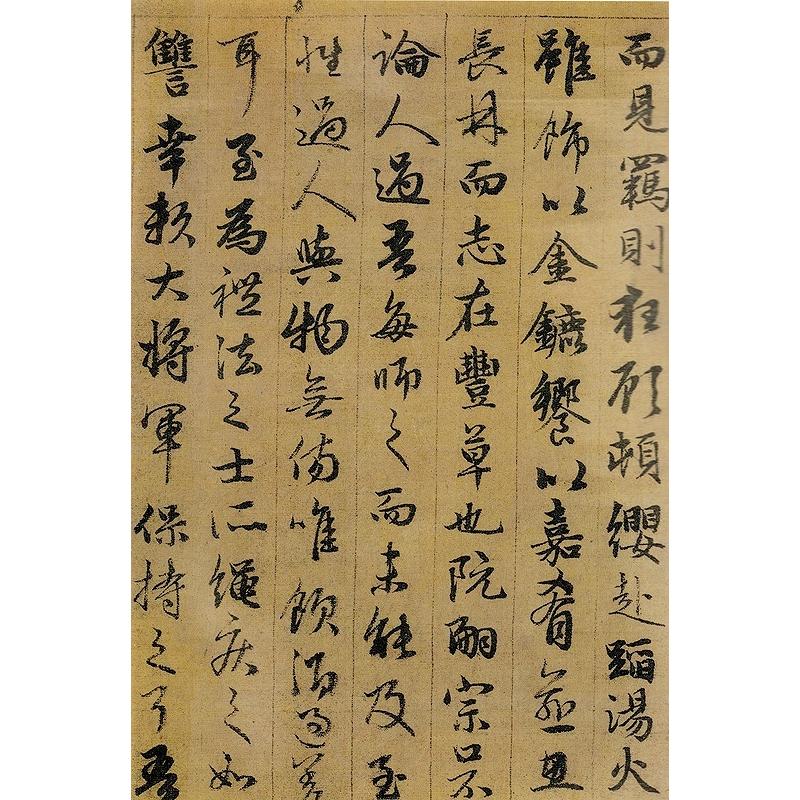 而見羈則狂顧頓纓赴蹈湯火
雖飾以金鑣饗以嘉肴愈思
長林而志在豐草也阮嗣宗口不
論人過吾每師之而未能及至
性過人與物無傷唯飲酒過差
耳至為禮法之士所繩疾之如
讎幸賴大將軍保持之耳吾